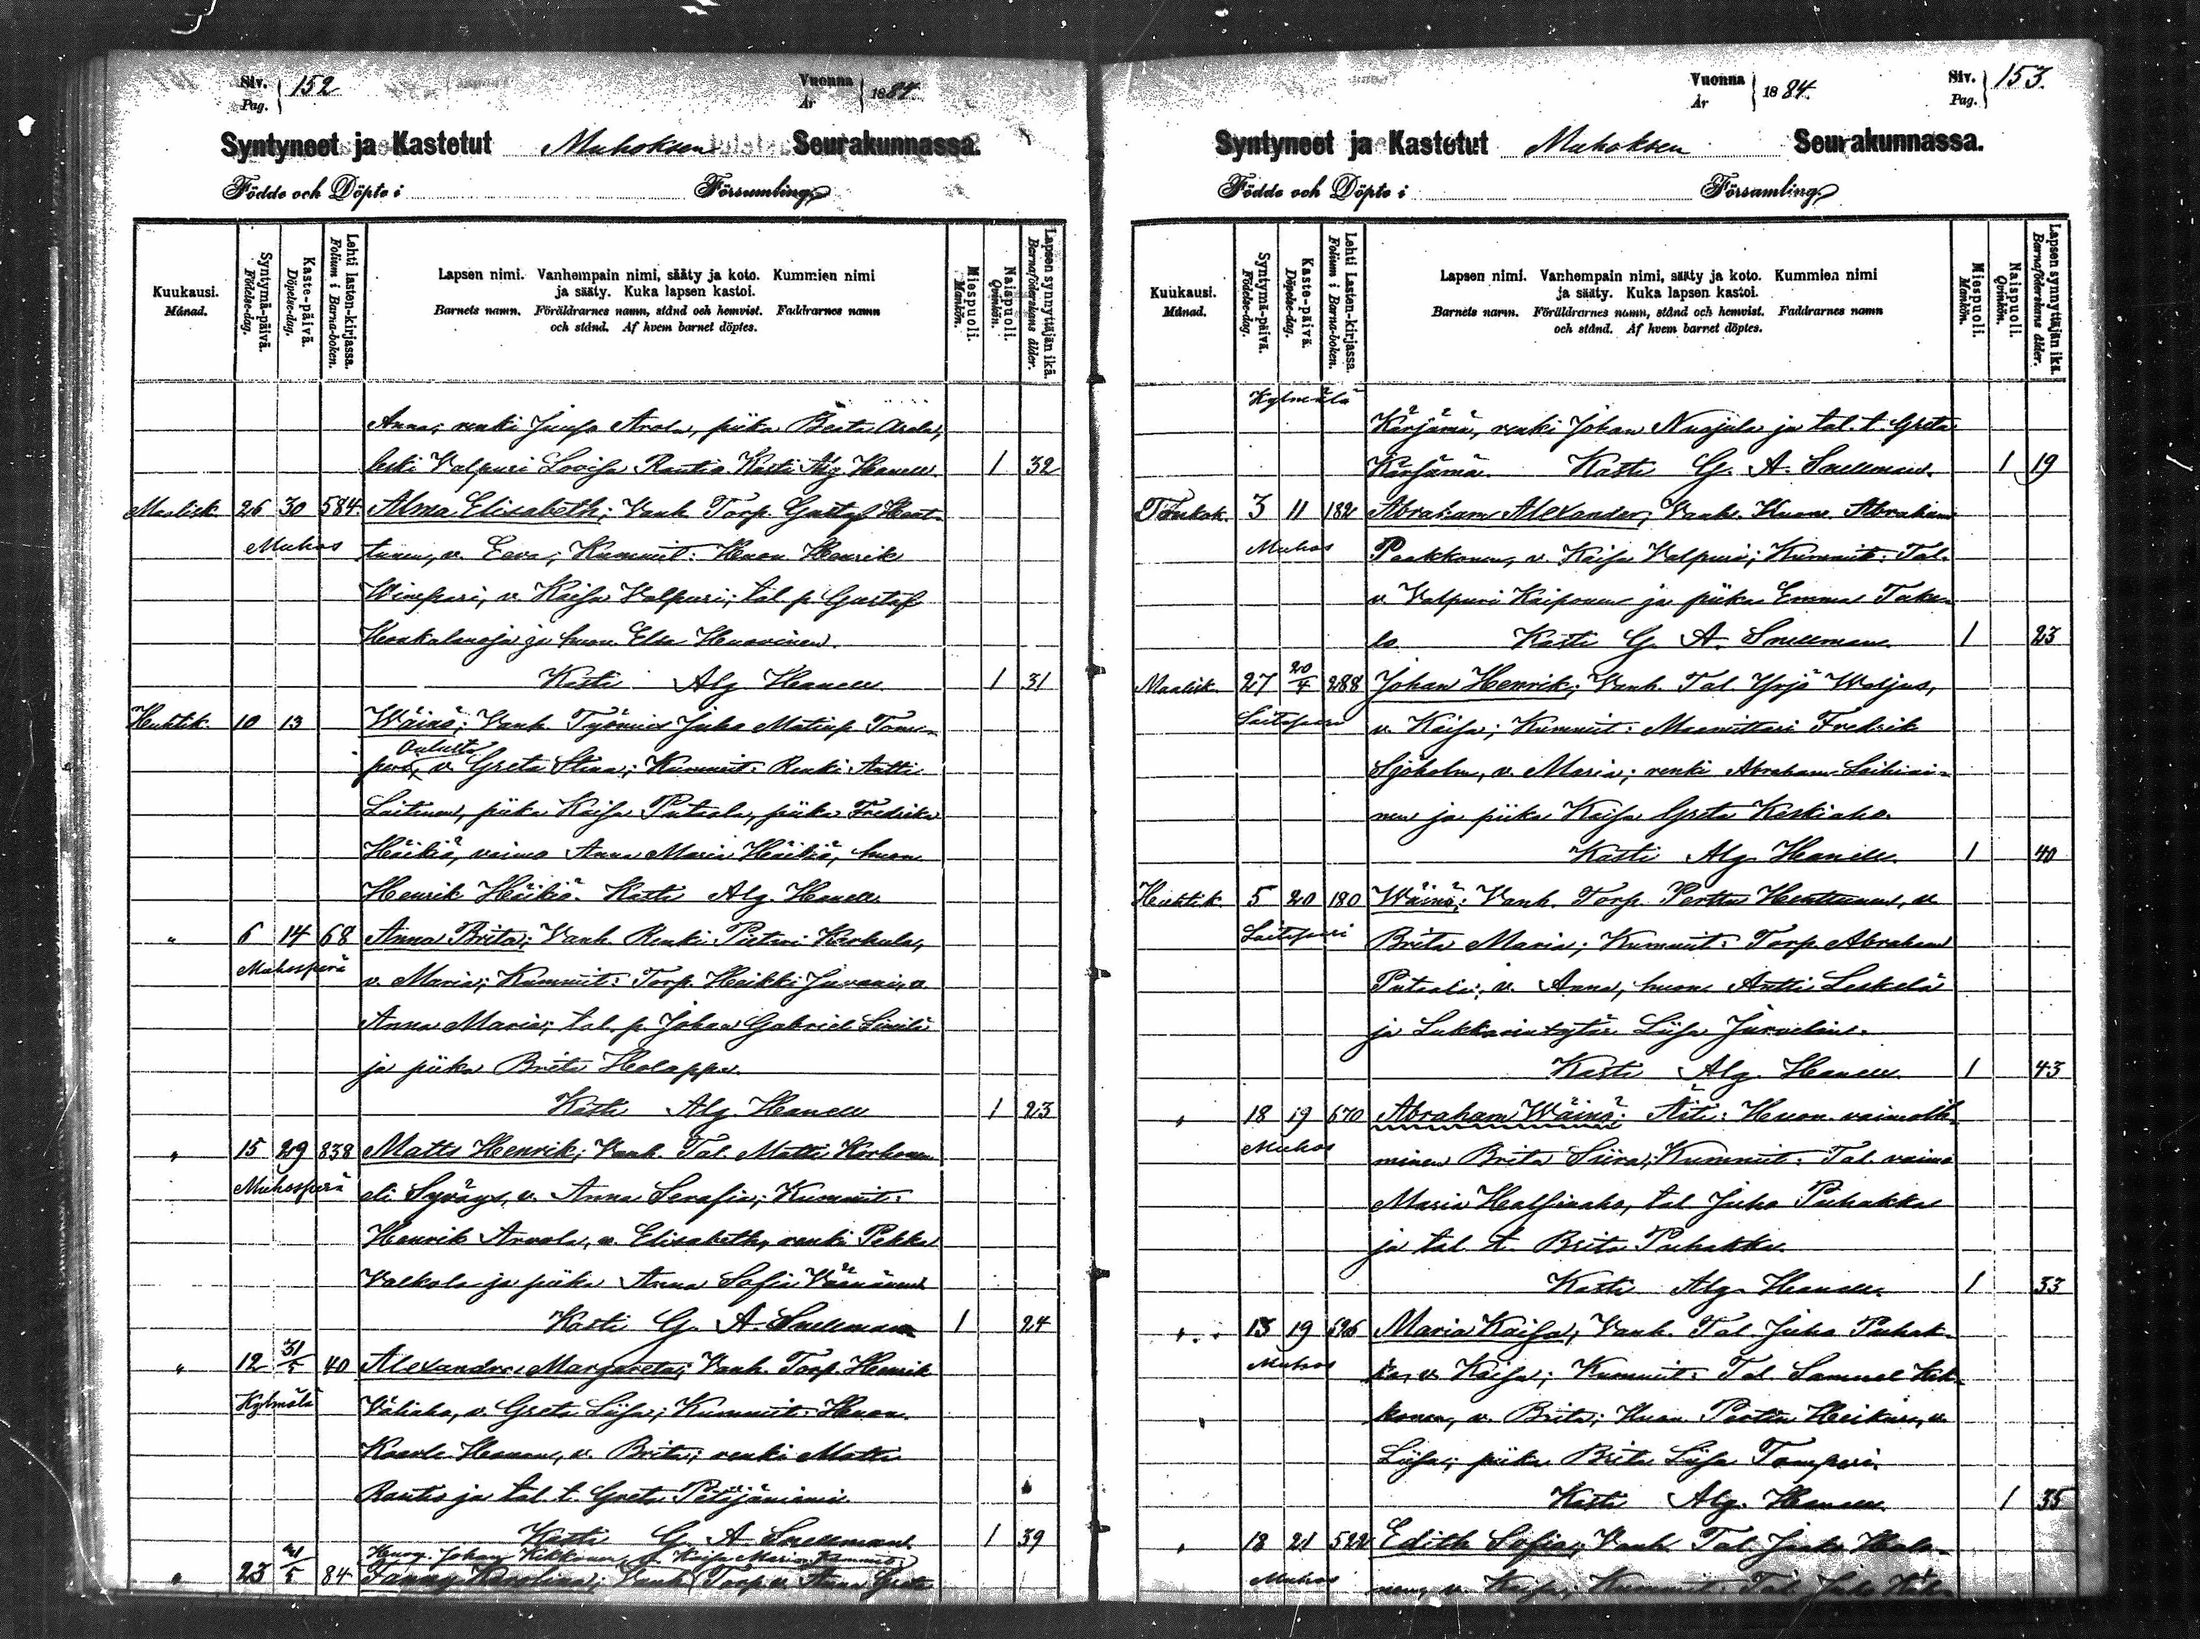 Siv. 152
Pag.
Vuonna 1884.
År
Syntyneet ja Kastetut Muhoksen Seurakunnassa.
Födde och Döpte i Församling
Kuukausi.
Månad.
Syntymä-päivä.
Födelse-dag.
Kaste-päivä.
Döpelse-dag.
Lehti lasten-kirjassa.
Folium i Barna-boken.
Lapsen nimi. Vanhempain nimi, sääty ja koto. Kummien nimi
ja sääty. Kuka lapsen kastoi.
Barnets namn. Föräldrarnes namn, stånd och hemvist. Faddrarnes namn
och stånd. Af hvem barnet döptes.
Miespuoli.
Mankön.
Naispuoli.
Qvinkön.
Lapsen synnyttäjän ikä.
Barnaföderskans ålder.
Anna; renki Juho Arola, piika Beata Arola,
leski Valpuri Lovisa Rautio Kasti Alg. Hanell 1 32
Maalisk. 26 30 584 Alma Elisabeth; Vanh. Torp. Gustaf Hent-
Muhos tunen, v. Eeva; Kummit: Huon Henrik
v. Kaisa Valpuri; tal. p. Gustaf
ja huon. Elsa Huovinen.
Kasti Alg. Hanell 1 31
Huhtik. 10 13 Wäinö; Vanh. Työmies Juho Matinp. Tom-
Oulusta
v. Greta Stina; Kummit: Renki Antti
Laitinen, piika Kaisa Putaala, piika Fredrika
Häikiö, vaimo Anna Maria Häikiö, huon
Henrik Häikiö. Kasti Alg. Hanell
" 6 14 68 Anna Brita; Vanh. Renki Pieteri Kerkula,
Muhosperä v. Maria; Kummit: Torp. Heikki Juvani, v.
Anna Maria; tal. p. Johan Gabriel
ja piika Brita Holappa.
Kasti Alg. Hanell 1 23
" 15 29 838 Matts Henrik; Vanh. Tal. Matti Korhonen
Muhosperä eli Syväys, v. Anna Serafia; Kummit:
Henrik Arvola, v. Elisabeth, renki Pekka
Valkola ja piika Anna Sofia Väänänen
Kasti G. A. Snellman 1 24
" 12 31/5 40 Alexandra Margareta; Vanh. Torp. Henrik
Kylmälä Väliaho, v. Greta Liisa; Kummit: Huon.
Kaarle Hanen, v. Brita; renki Matti
Rautio ja tal. t. Greta Petäjäniemi
Kasti G. A. Snellman 1 39
Huon. Johan Kikkonen, v. Kaisa Maria Kummit:
" 23 84 Fanny Karolina; Vanh. Torp. v. Anna Greta
Vuonna 1884.
År
Siv. 153.
Pag.
Syntyneet ja Kastetut Muhoksen Seurakunnassa.
Födde och Döpte i Församling
Kuukausi.
Månad.
Syntymä-päivä.
Födelse-dag.
Kaste-päivä.
Döpelse-dag.
Lehti Lasten-kirjassa.
Folium i Barna-boken.
Lapsen nimi. Vanhempain nimi, sääty ja koto. Kummien nimi
ja sääty. Kuka lapsen kastoi.
Barnets namn. Föräldrarnes namn, stånd och hemvist. Faddrarnes namn
och stånd. Af hvem barnet döptes.
Miespuoli.
Mankön.
Naispuoli.
Qvinkön.
Lapsen synnyttäjän ikä.
Barnaföderskans ålder.
Kylmälä
Kärsämä, renki Johan Nuojula ja tal. t. Greta
Kärsämä. Kasti G. A. Snellman. 1 19
Toukok. 3 11 182 Abraham Alexander; Vanh. Huone Abraham
Muhos Paakkonen, v. Kaisa Valpuri; Kummit: Tal.
v. Valpuri Kaiponen ja piika Emma Toka-
la Kasti G. A. Snellman. 1 23
Maalisk. 27 20/4 288 Johan Henrik; Vanh. Tal. Yrjö Waljus,
Laitasaari v. Kaisa; Kummit: Maamittari Fredrik
Sjöholm, v. Maria; renki Abraham Laihi-
nen ja piika Kaisa Greta Keskiaho.
Kasti Alg. Hanell. 1 40
Huhtik. 5 20 180 Wäinö; Vanh. Torp. Perttu Henttunen, v.
Laitasaari Brita Maria; Kummit: Torp. Abraham
Putaala, v. Anna, huone Antti Leskelä
ja Lukkarintytär Liisa Jurvelin.
Kasti Alg. Hanell 1 43
" 18 19 670 Abraham Wäinö; Äiti: Huon. vaimolli-
Muhos minen Brita Siira; Kummit: Tal. vaimo
Maria Halsinaho, tal. Juho Puhakka
ja tal. t. Brita Puhakka.
Kasti Alg. Hanell. 1 33
" 13 19 526 Maria Kaisa; Vanh. Tal. Juho Puhak-
Muhos ka, v. Kaisa; Kummit: Tal. Samuel Kik-
konen, v. Brita; Huon. Perttu Heikura, v.
Liisa; piika Brita Liisa Tomperi.
Kasti Alg. Hanell. 1 35
" 18 21 522 Edith Sofia; Vanh. Tal. Juho Halo-
Muhos nen, v. Kaisa; Kummit: Tal. Juho